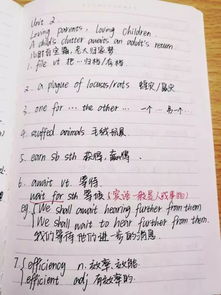 Unit 2.
Loving parents, loving children
A child's clutter awaits an adult's return
儿时百宝箱,老大归家梦
1. file vt 把…归档/存档
2. a plague of locusts/rats 蝗灾/鼠灾
3. one for … the other … 一个… 另一个…
4. stuffed animals 毛绒玩具
5. earn sb sth 获得,赢得
6. await vt. 等待
wait for sth 等待(宾语一般是人或事物)
eg. { We shall await hearing further from them
We shall wait to hear further from them.
我们等待他们进一步的消息
7. { efficiency n. 效率,效能
efficient adj 有效率的.